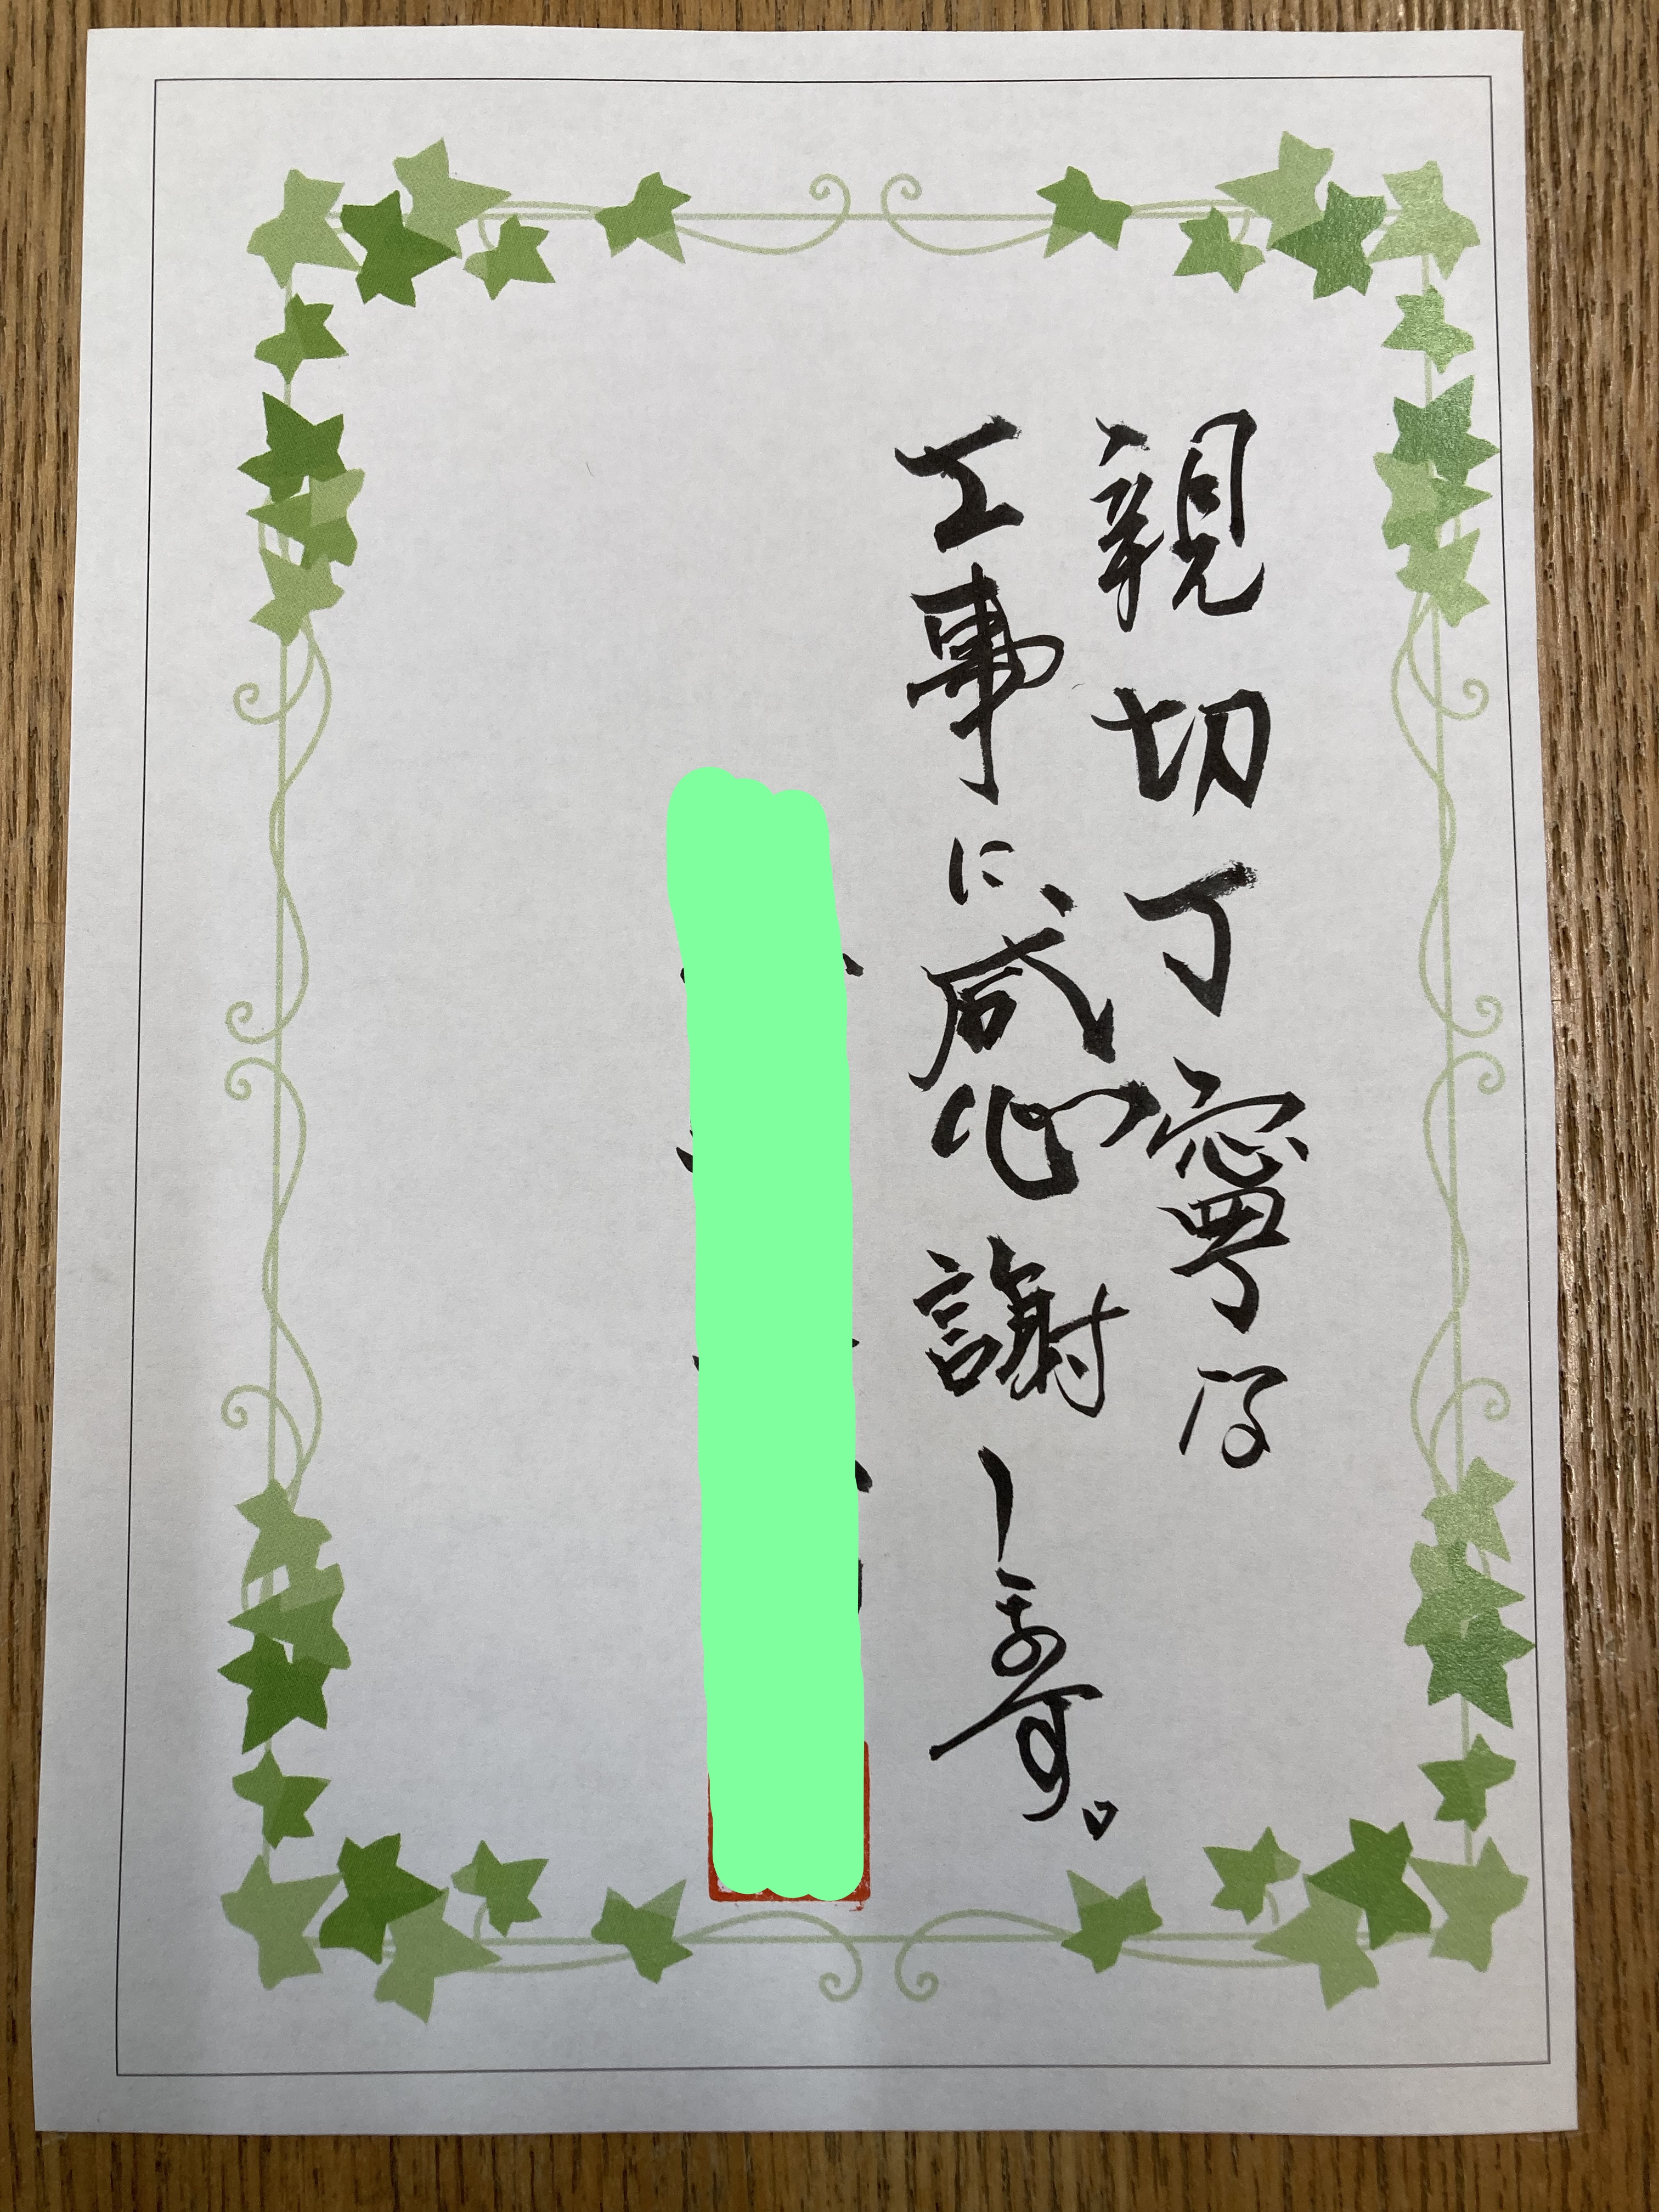 親切丁寧な
工事に感謝します。